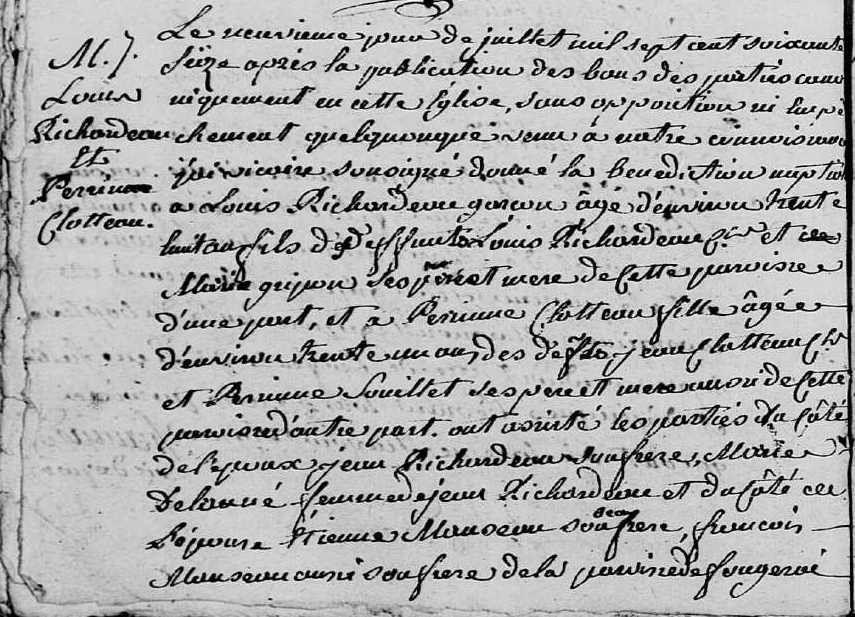 M. 7.
Louis
Richardeau
Et
Perrinne
Clotteau.
Le neuvieme jour de juillet mil sept cent soixante
seize après la publication des bans des parties cano
niquement en cette Eglise, sans opposition ni Empê
chement quelquonque venu à notre connoissance
j'ai vicaire soussigné donné la benediction nuptial
a Louis Richardeau garçon âgé d'environ trente
huit ans fils de deffunts Louis Richardeau et de
Marie grijon ses pere et mere de Cette paroisse
d'une part, et a Perinne Clotteau fille âgée
d'environ trente un ans des def.ts jean Clotteau
et Perinne Souillet ses pere et mere aussi de Cette
paroisse d'autre part. ont assisté les parties du Côté
de l'epoux jean Richardeau son frere, Marie
Delaunné femme de jean Richardeau et du Côté de
l'épouse Etienne Manseau son beau frere, francois
Manseau aussi son frere de la paroisse de fougeré